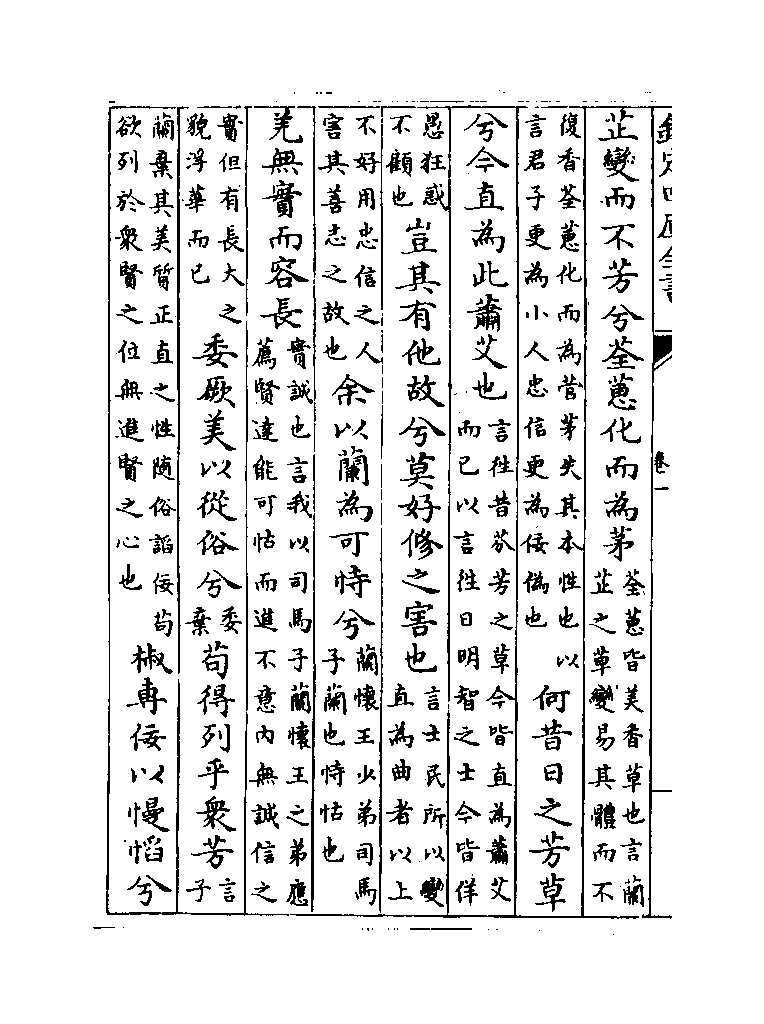 欽定四庫全書
卷一
芷變而不芳兮荃蕙化而為茅荃蕙皆美香草也言蘭芷之草變易其體而不
復香荃蕙化而為菅茅失其本性也以言君子更為小人忠信更為佞偽也何昔日之芳草
兮今直為此蕭艾也言往昔芬芳之草今皆直為蕭艾而已以言往日明智之士今皆佯
愚狂惑不顧也豈其有他故兮莫好修之害也言士民所以變直為曲者以上
不好用忠信之人害其善志之故也余以蘭為可恃兮蘭懷王少弟司馬子蘭也恃怙也
羌無實而容長實誠也言我以司馬子蘭懷王之弟應薦賢達能可怙而進不意内無誠信之
實但有長大之貌浮華而已委厥美以從俗兮委棄苟得列乎衆芳言子
蘭棄其美質正直之性隨俗諂佞苟欲列於衆賢之位無進賢之心也椒專佞以慢慆兮